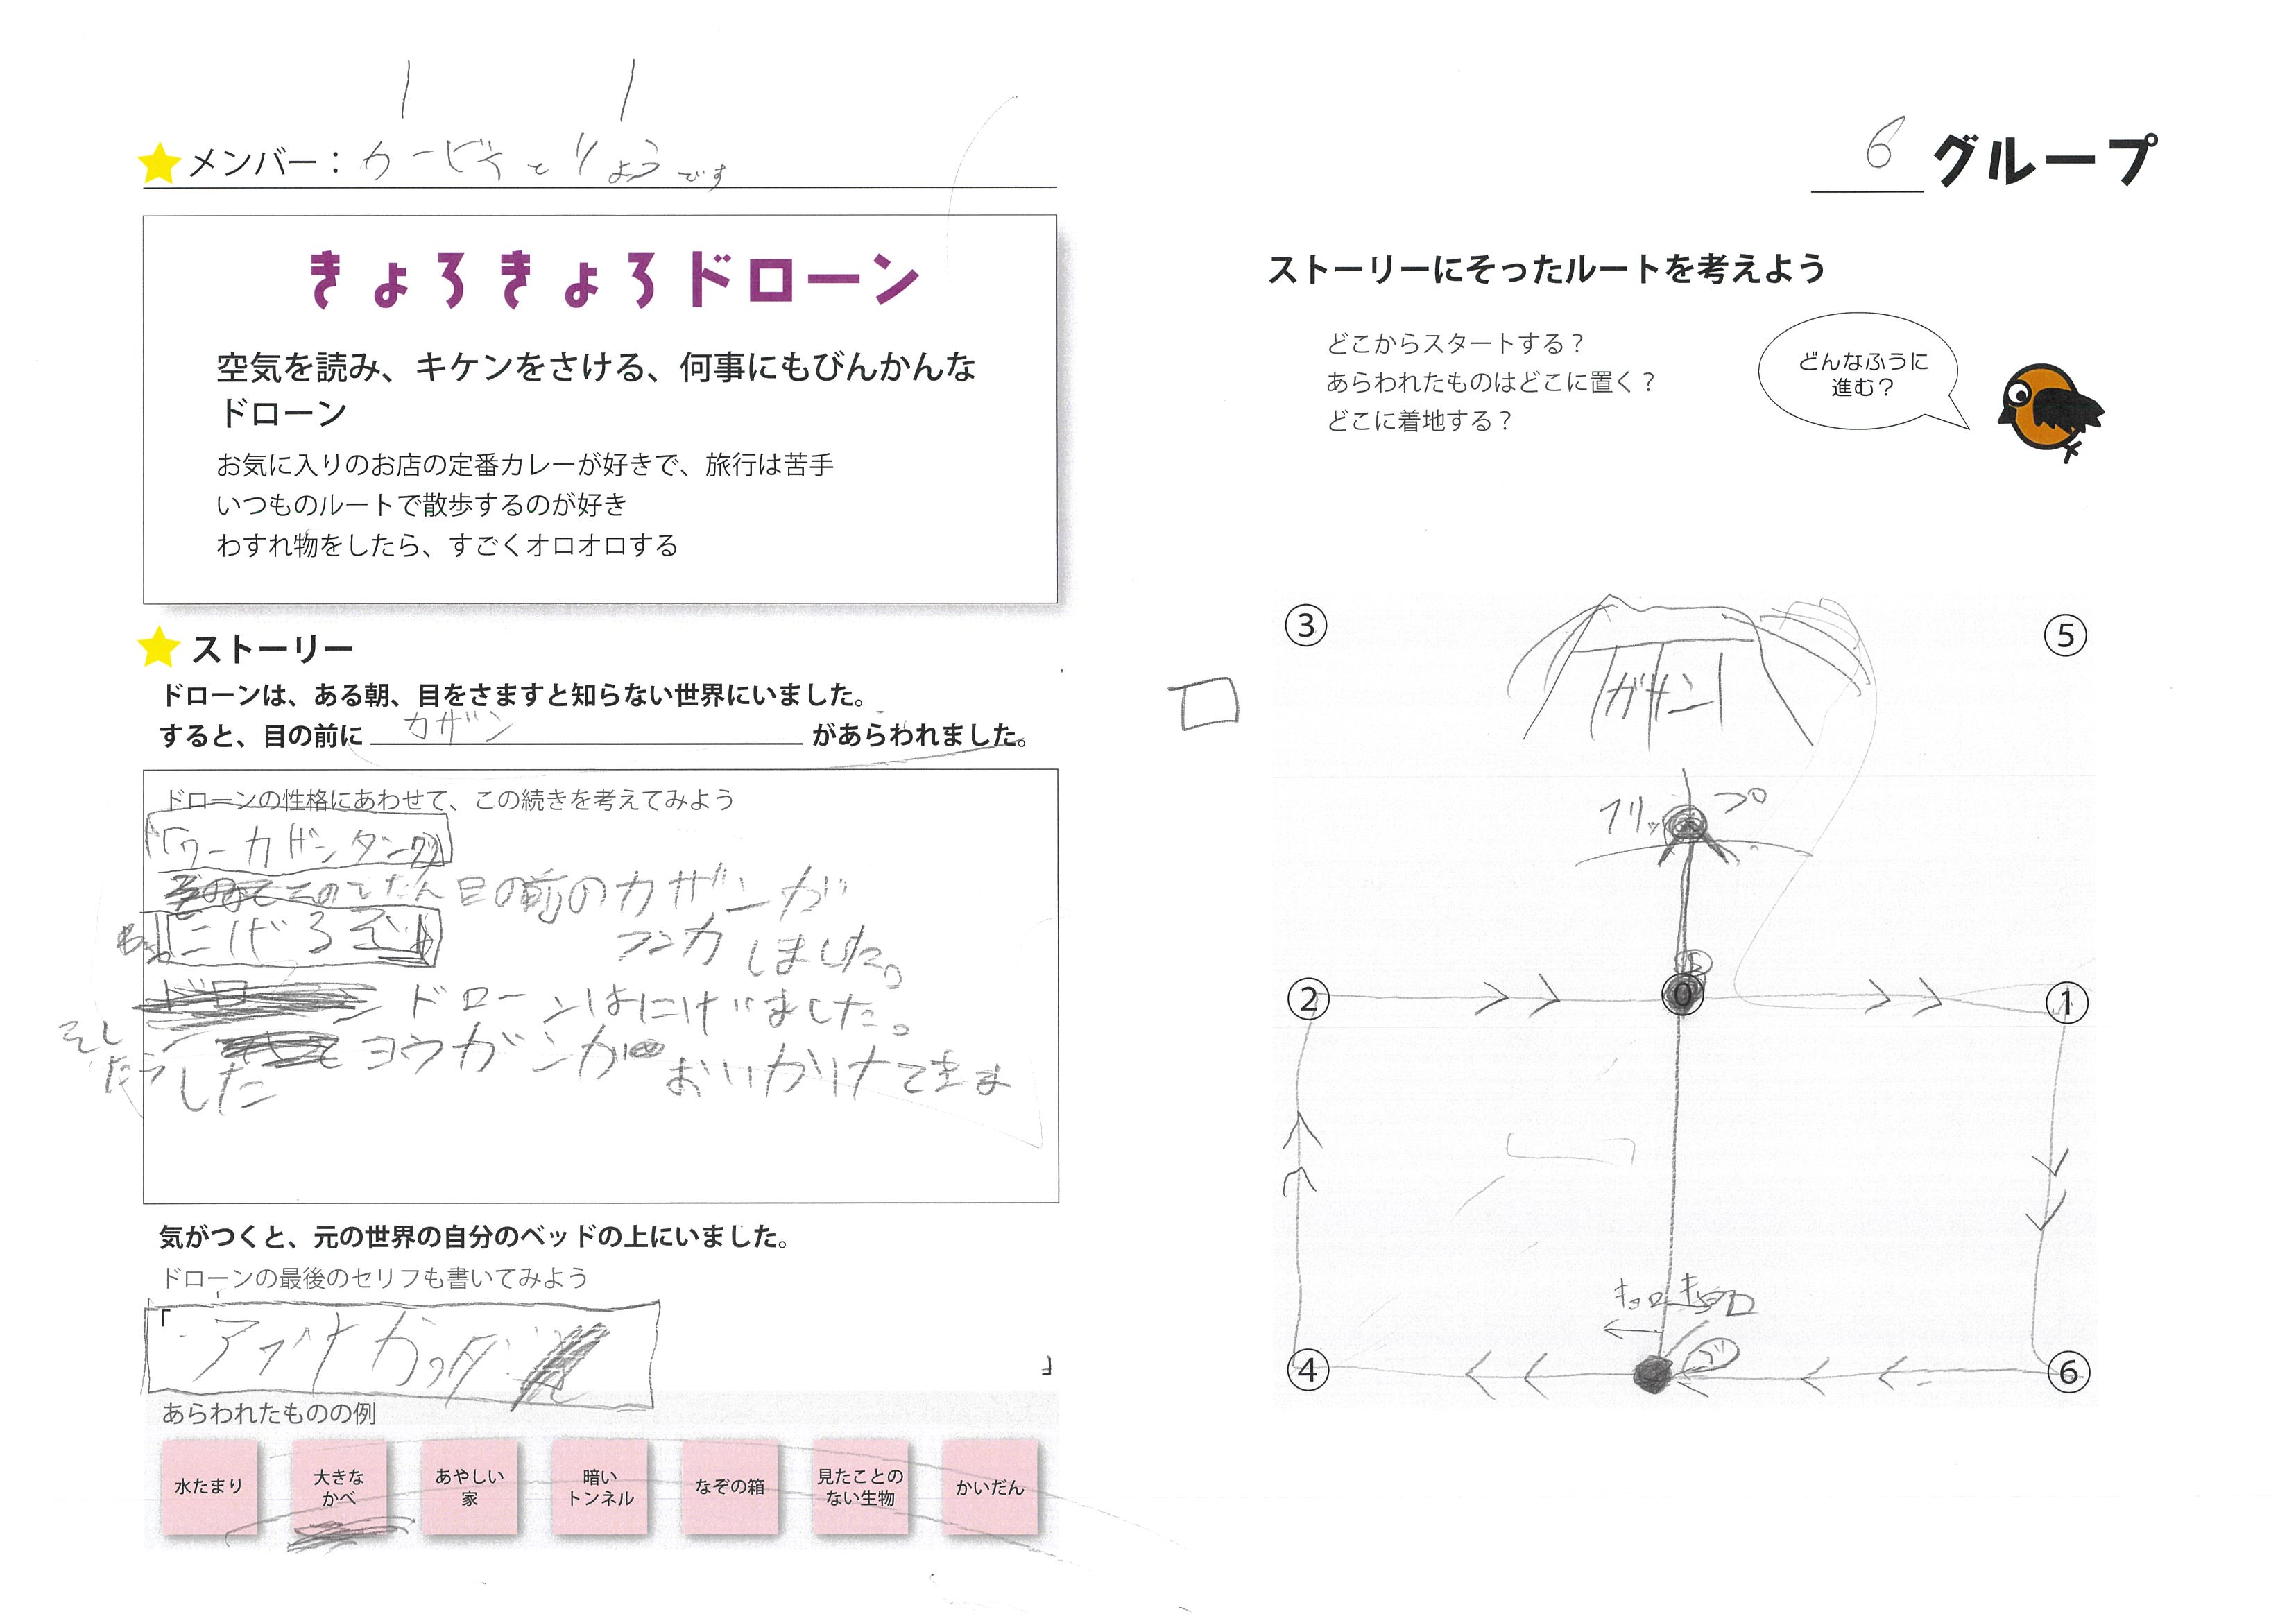 メンバー：カービィとりょうです
きょろきょろドローン
空気を読み、キケンをさける、何事にもびんかんな
ドローン
お気に入りのお店の定番カレーが好きで、旅行は苦手
いつものルートで散歩するのが好き
わすれ物をしたら、すごくオロオロする
ストーリー
ドローンは、ある朝、目をさますと知らない世界にいました。
すると、目の前に カザン があらわれました。
ドローンの性格にあわせて、この続きを考えてみよう
「ワーカザンダ
このとたん目の前のカザンが
フンカしました。
「にげろ
ドローンはにげました。
そし
たら
ヨウガンがおいかけてきま
した
気がつくと、元の世界の自分のベッドの上にいました。
ドローンの最後のセリフも書いてみよう
「アブナかった
」
あらわれたものの例
水たまり
大きな
かべ
あやしい
家
暗い
トンネル
なぞの箱
見たことの
ない生物
かいだん
6 グループ
ストーリーにそったルートを考えよう
どこからスタートする？
あらわれたものはどこに置く？
どこに着地する？
どんなふうに
進む？
③
⑤
ガザン
フリップ
②
0
①
キョロキョロ
④
⑥